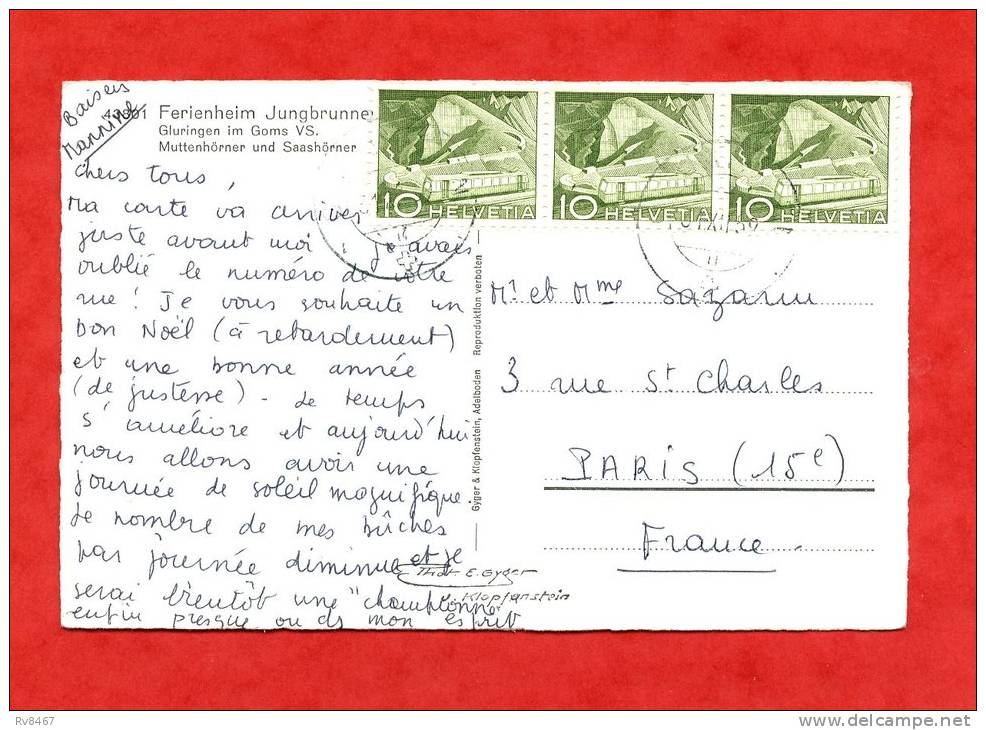 Baisers
Mannine
43801 Ferienheim Jungbrunne
Gluringen im Goms VS.
Muttenhörner und Saashörner
10 HELVETIA 10 HELVETIA 10 HELVETIA
Chers tous,
Ma carte va arriver
juste avant moi je avais
oublié le numéro de votre
rue ! Je vous souhaite un
bon Noël (à retardement)
et une bonne année
(de justesse) - Le temps
s'améliore et aujourd'hui
nous allons avoir une
journée de soleil magnifique.
Le nombre de mes bûches
par journée diminue et je
serai bientôt une "championne"
enfin presque ou ds mon esprit
Gyger & Klopfenstein, Adelboden Reproduktion verboten
Phot. E. Gyger
Klopfenstein
Mr et Mme Sazarin
3 rue St Charles
PARIS (15e)
France
Rv8467
www.delcampe.net